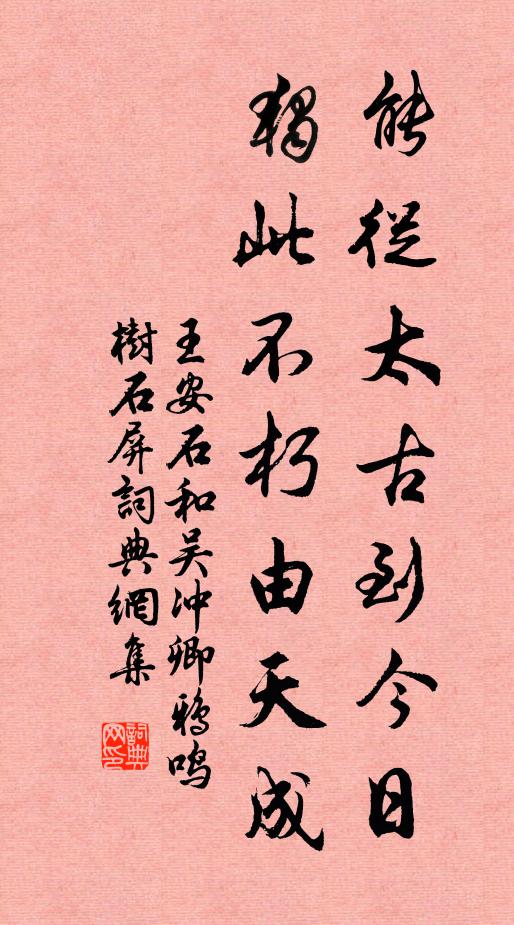 能從太古到今日
獨此不朽由天成
王安石和吴沖卿鴉鳴
樹石屏詞典網集
詞典网印